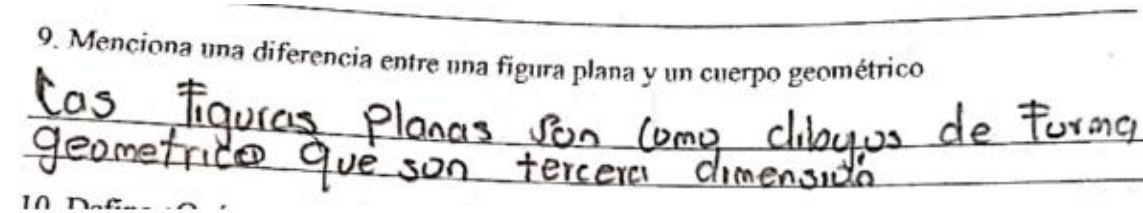 9. Menciona una diferencia entre una figura plana y un cuerpo geométrico
Las Figuras Planas son como dibujos de Forma
geometrico que son tercera dimensión